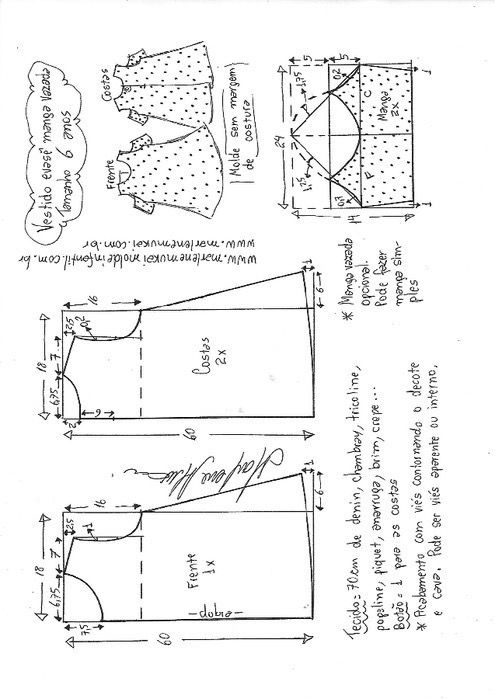 Vestido evasê manga vazada
Tamanho 6 anos
Frente
Costas
Molde sem margem
de costura
www.marlenemukaimoldeinfantil.com.br
www.marlenemukai.com.br
24
5
5
1,75
1,25
0,7
0,2
F
C
Manga
2x
14
1
1
* Manga vazada
opcional.
Pode fazer
manga sim-
ples
18
6,75
7
2,5
0,2
16
2
6
Costas
2x
60
9
1
18
6,75
7
2,5
1
16
7,5
Frente
1x
dobra
60
9
1
Tecido = 70cm de denin, chambray, tricoline,
popoline, piquet, anarruga, brim, crepe...
Botão = 1 para as costas
* Acabamento com viés contornando o decote
e cava. Pode ser viés aparente ou interno.